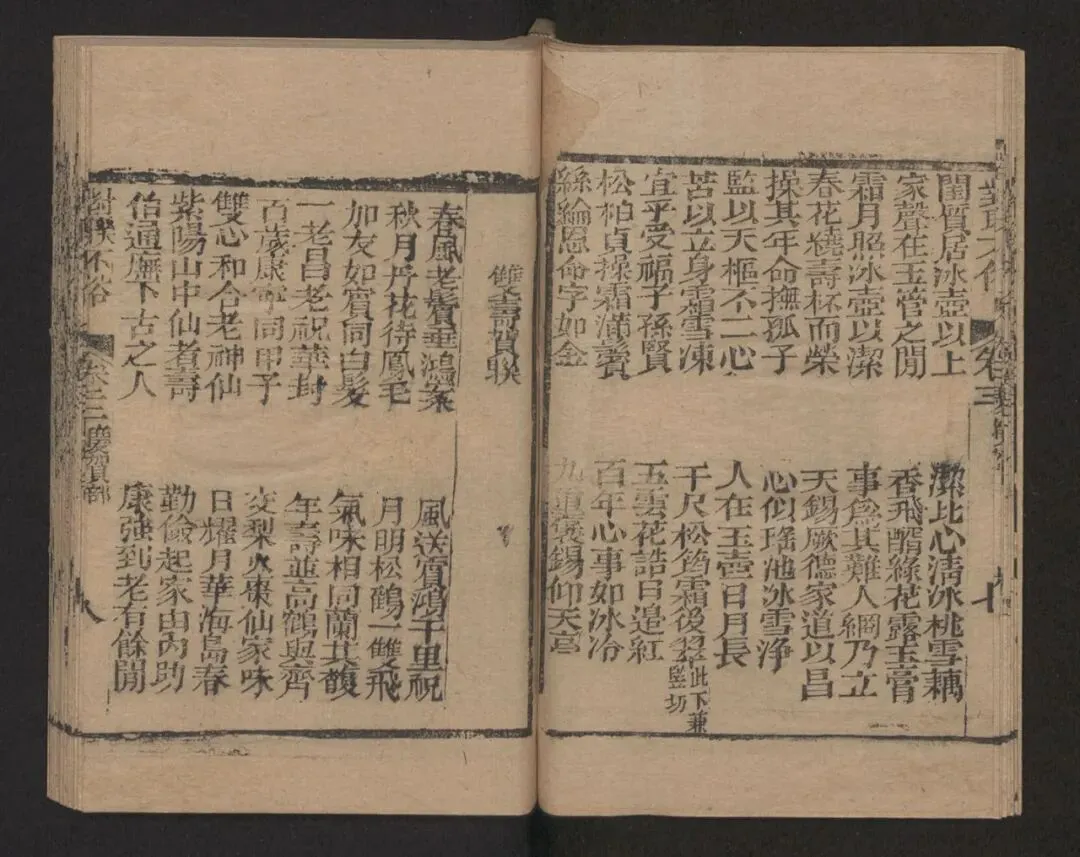 對聯不俗
卷三
閨質居冰壺以上
潔比心清冰桃雪藕
家聲在玉管之閒
香飛醑綠花露玉膏
霜月照冰壺以潔
事為其難人綱乃立
春花繞壽杯而榮
天錫厥德家道以昌
操其年命撫孤子
心似瑤池冰雪淨
監以天樞不二心
人在玉壺日月長
苦以立身霜雪凍
千尺松筠霜後翠此下兼監坊
宜乎受福子孫賢
五雲花誥日邊紅
松柏貞操霜滿鬢
百年心事如冰冷
絲綸恩命字如金
九重褒錫仰天高
雙壽賀聯
春風老鬢垂鴻案
風送賓鴻千里祝
秋月丹花待鳳毛
月明松鶴一雙飛
加友如賓同白髮
氣味相同蘭其馥
一老昌老祝華封
年壽並高鶴與齊
百歲康寧同甲子
交梨火棗仙家味
雙心和合老神仙
日耀月華海島春
紫陽山中仙者壽
勤儉起家由內助
伯通廡下古之人
康強到老有餘閒
對聯不俗
卷三
慶賀部
八